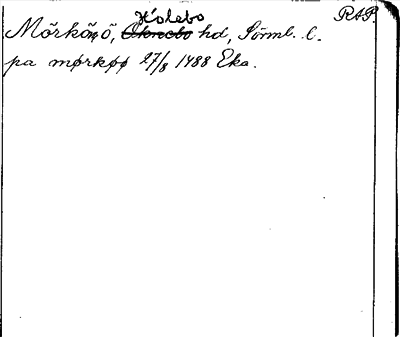 RAP.
Hölebo
Mörkö, ö, Oknebo hd, Sörml. l.
pa mørkøø 27/8 1488 Eka.